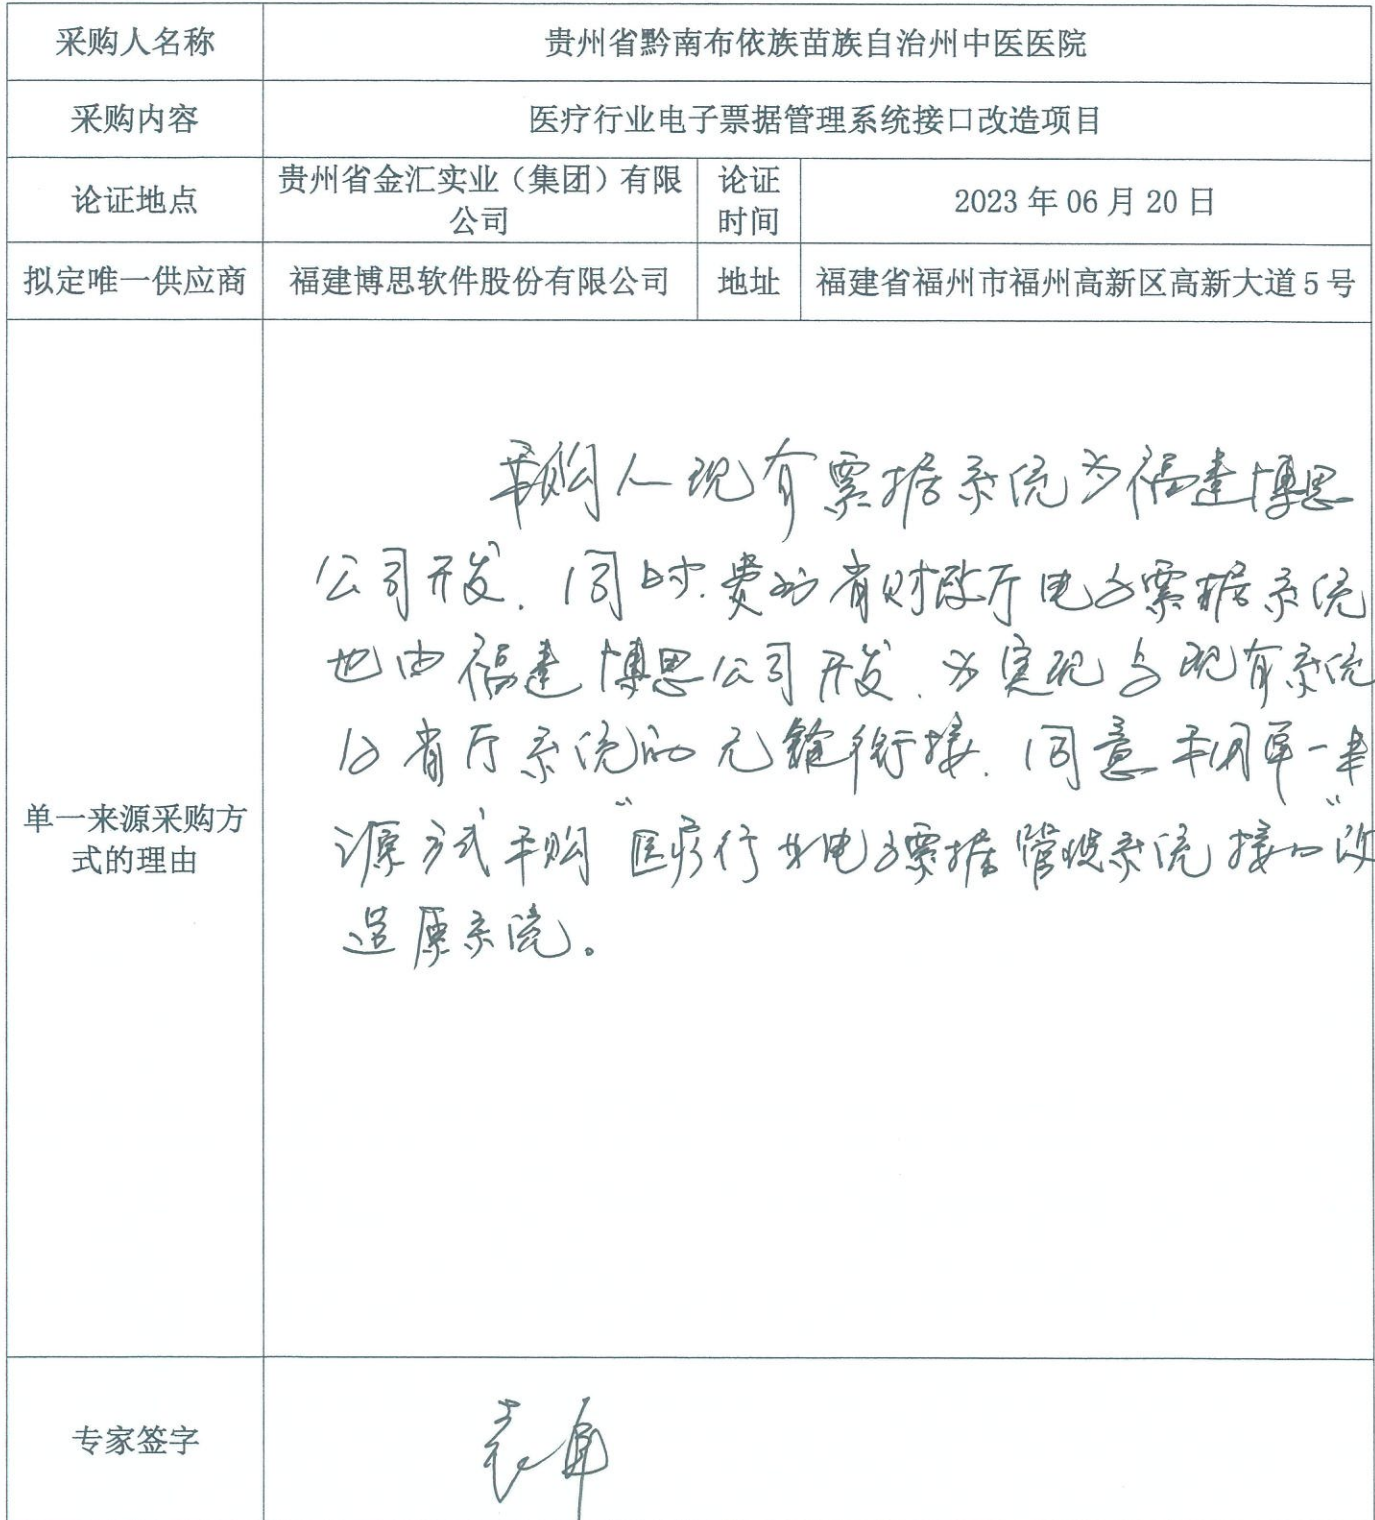 采购人名称 贵州省黔南布依族苗族自治州中医医院
采购内容 医疗行业电子票据管理系统接口改造项目
论证地点 贵州省金汇实业（集团）有限公司 论证时间 2023年06月20日
拟定唯一供应商 福建博思软件股份有限公司 地址 福建省福州市福州高新区高新大道5号
单一来源采购方式的理由
采购人现有票据系统为福建博思
公司开发，同时，贵州省财政厅电子票据系统
也由福建博思公司开发，为实现与现有系统
及省厅系统的无缝衔接，同意采用单一来
源方式采购“医疗行业电子票据管理系统接口”改
造原系统。
专家签字